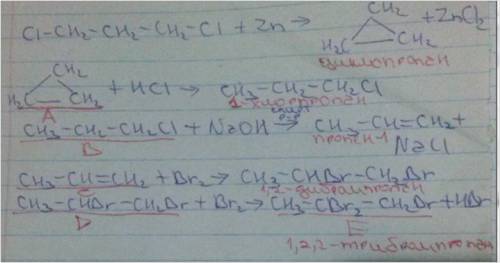 Cl-CH₂-CH₂-CH₂-Cl + Zn → CH₂ H₂C CH₂ + ZnCl₂
циклопропан
CH₂
H₂C CH₂ + HCl → CH₃-CH₂-CH₂Cl
A 1-хлорпропан
CH₃-CH₂-CH₂Cl + NaOH спирт р-р → CH₃-CH=CH₂ +
B пропен-1 NaCl
CH₃-CH=CH₂ + Br₂ → CH₃-CHBr-CH₂Br
C 1,2-дибромпропан
CH₃-CHBr-CH₂Br + Br₂ → CH₃-CBr₂-CH₂Br + HBr
D E
1,2,2-трибромпропан